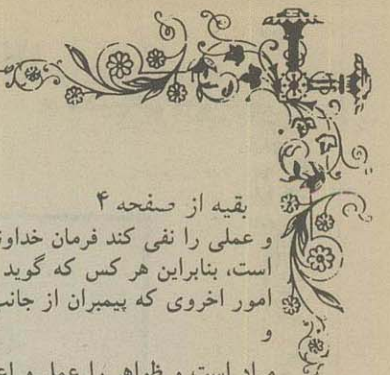 بقیه از صفحه ۴
و عملی را نفی کند فرمان
است، بنابراین هر کس که گوید
امور اخروی که پیمبران از جانب
و